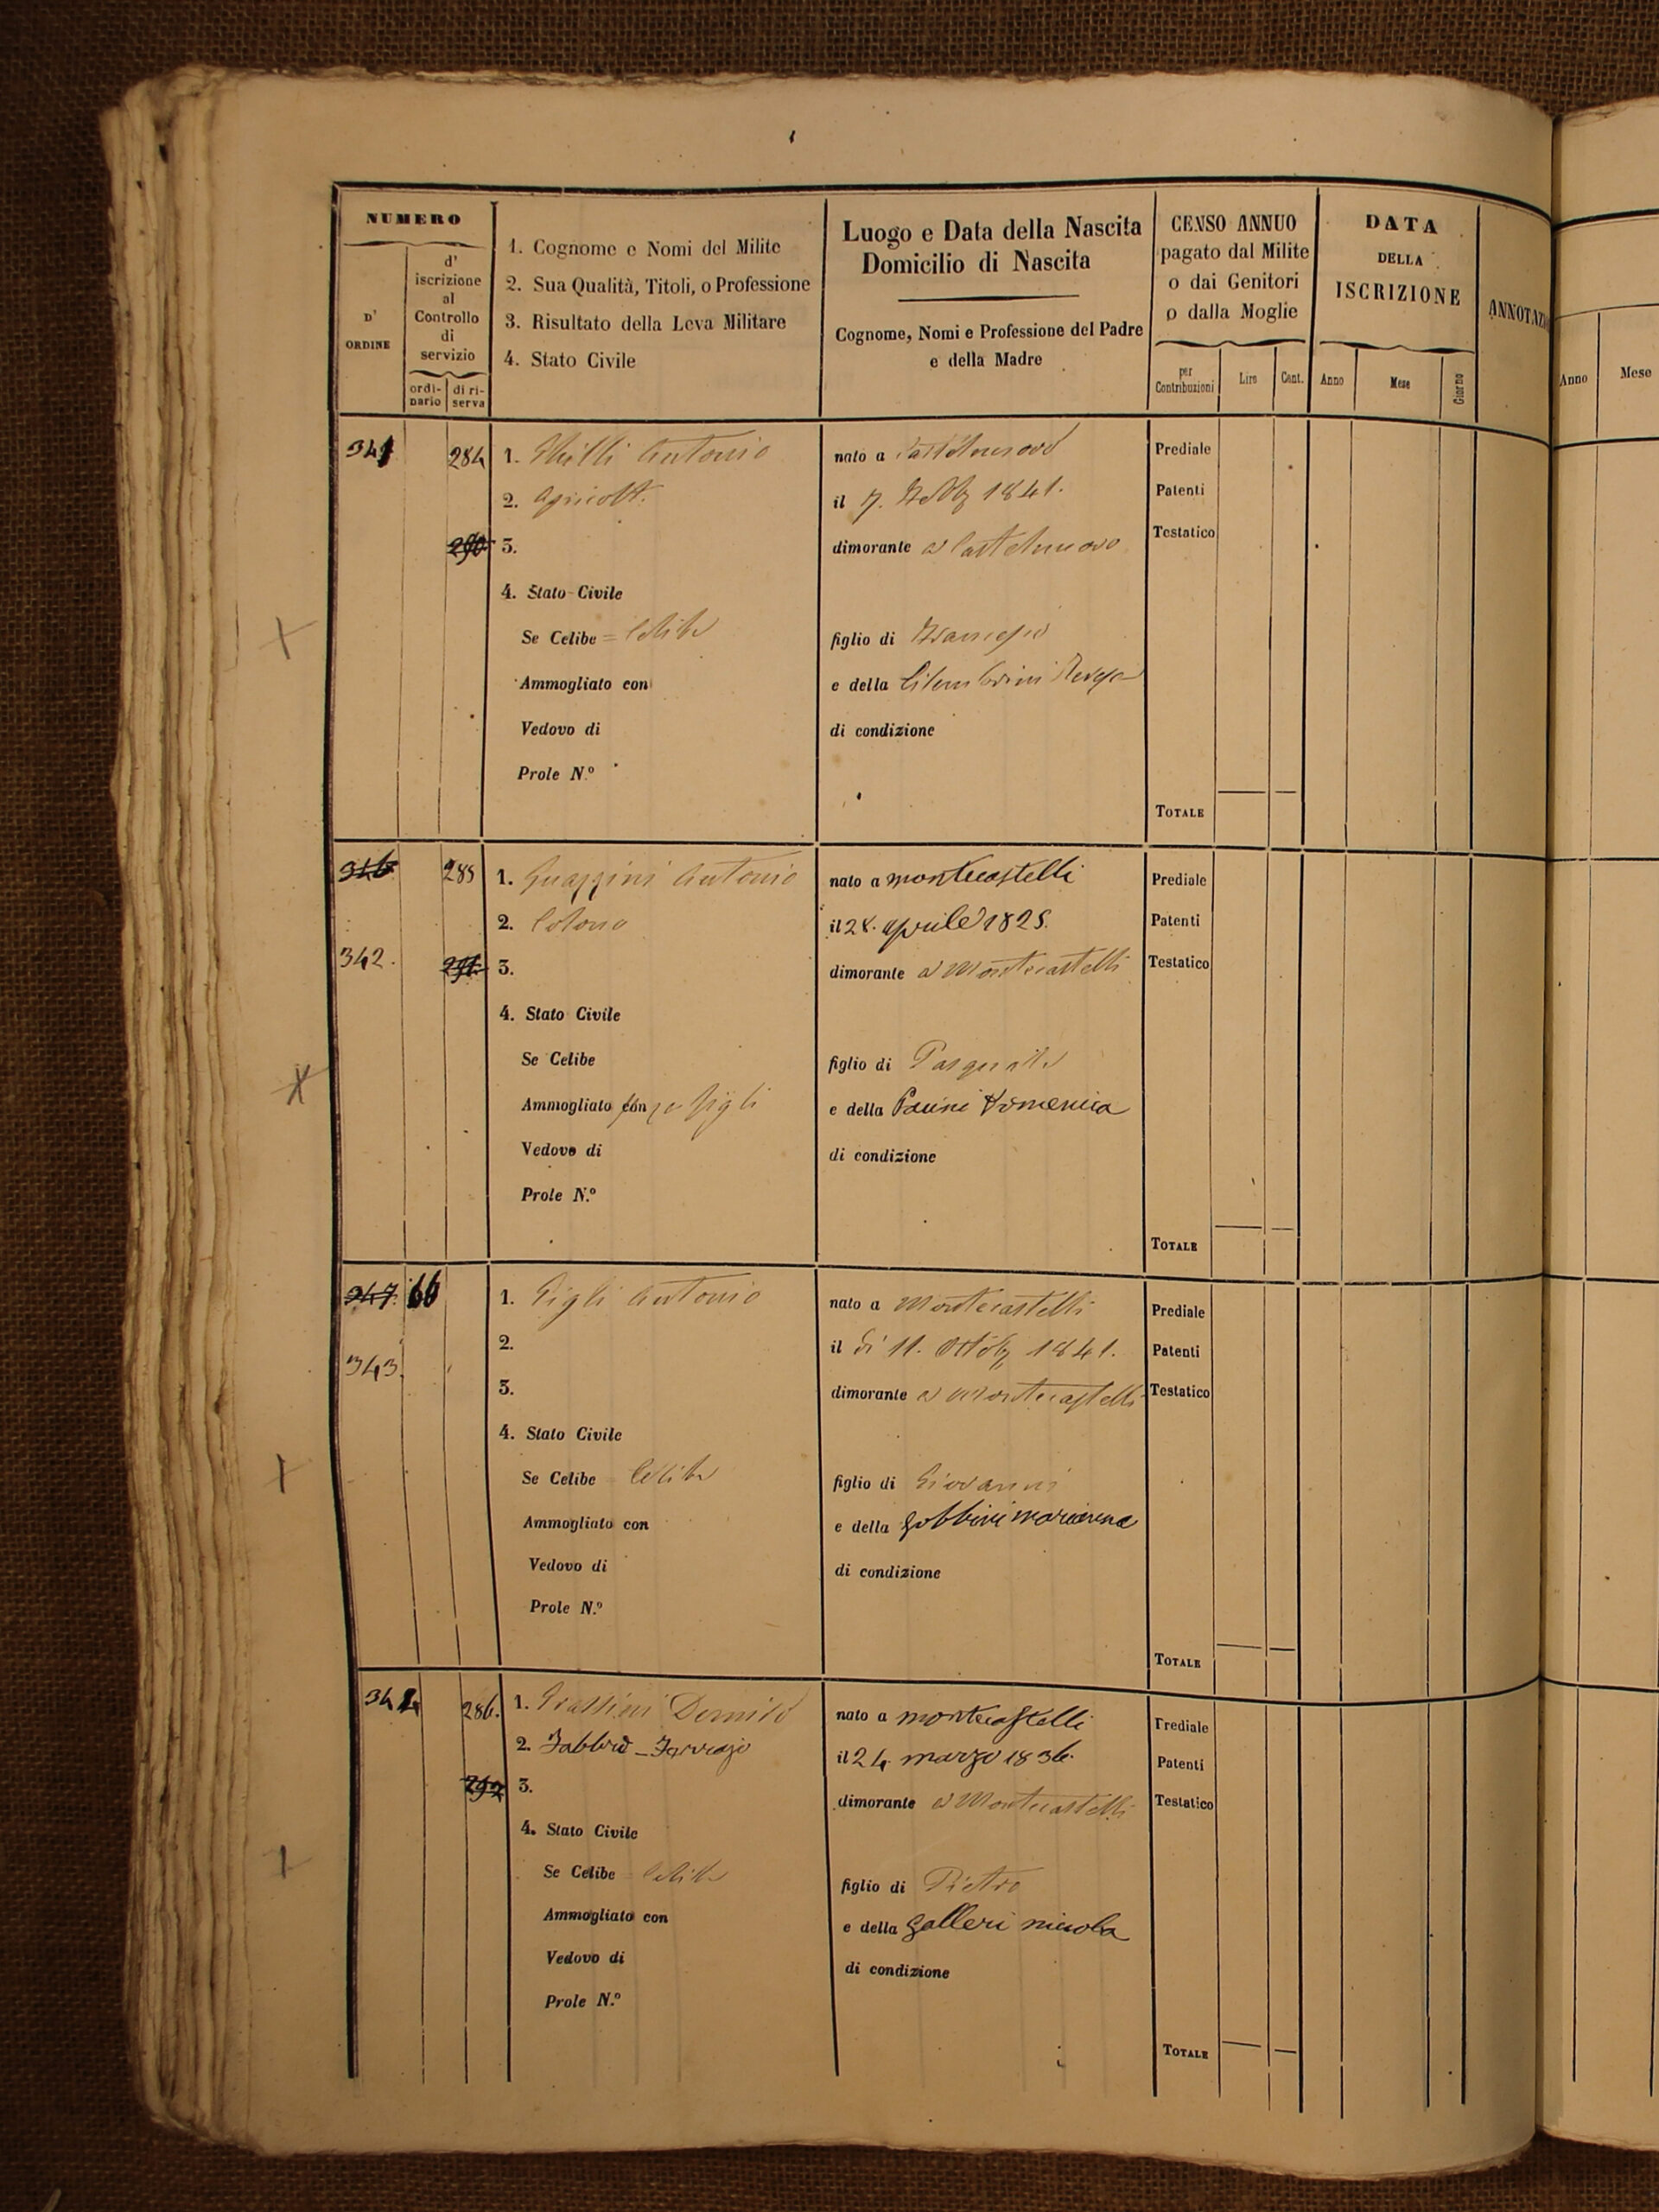 NUMERO
D'
ORDINE
d'
iscrizione
al
Controllo
di
servizio
ordi-
nario
di ri-
serva
1. Cognome e Nomi del Milite
2. Sua Qualità, Titoli, o Professione
3. Risultato della Leva Militare
4. Stato Civile
Luogo e Data della Nascita
Domicilio di Nascita
Cognome, Nomi e Professione del Padre
e della Madre
CENSO ANNUO
pagato dal Milite
o dai Genitori
o dalla Moglie
per
Contribuzioni
Lire
Cent.
DATA
DELLA
ISCRIZIONE
Anno
Mese
Giorno
ANNOTAZI
Anno
Mese
341
284
290
1. Antonio
2. Agricolt.
3.
4. Stato Civile
Se Celibe = Celibe
Ammogliato con
Vedovo di
Prole N.º
nato a Castelnuovo
il 7. 1841.
dimorante a Castelnuovo
figlio di
e della
di condizione
Prediale
Patenti
Testatico
TOTALE
346
342.
285
291
1. Guazzini Antonio
2. Colono
3.
4. Stato Civile
Se Celibe
Ammogliato con Gigli
Vedovo di
Prole N.º
nato a montecastelli
il 28. aprile 1825.
dimorante a Montecastelli
figlio di Pasquale
e della Domenica
di condizione
Prediale
Patenti
Testatico
TOTALE
347.
343.
66
1. Gigli Antonio
2.
3.
4. Stato Civile
Se Celibe = Celibe
Ammogliato con
Vedovo di
Prole N.º
nato a Montecastelli
il di 11. Ottob 1841.
dimorante a Montecastelli
figlio di Giovanni
e della Gobbini marianna
di condizione
Prediale
Patenti
Testatico
TOTALE
344
286.
292
1.
2. Fabbro - Ferrajo
3.
4. Stato Civile
Se Celibe = Celibe
Ammogliato con
Vedovo di
Prole N.º
nato a montecastelli
il 24. marzo 1836.
dimorante a Montecastelli
figlio di Pietro
e della galleri nicola
di condizione
Prediale
Patenti
Testatico
TOTALE